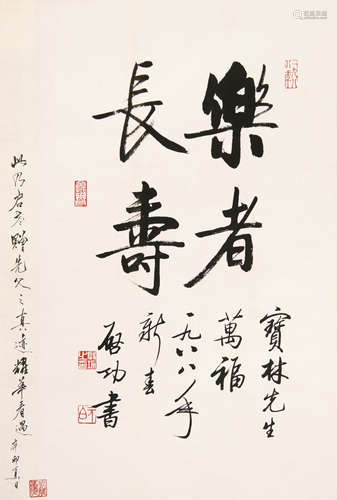 樂者
長壽
寶林先生
萬福
一九八八年
新春
啟功書
此乃启老赠先父之真迹耀華看過
辛卯夏日